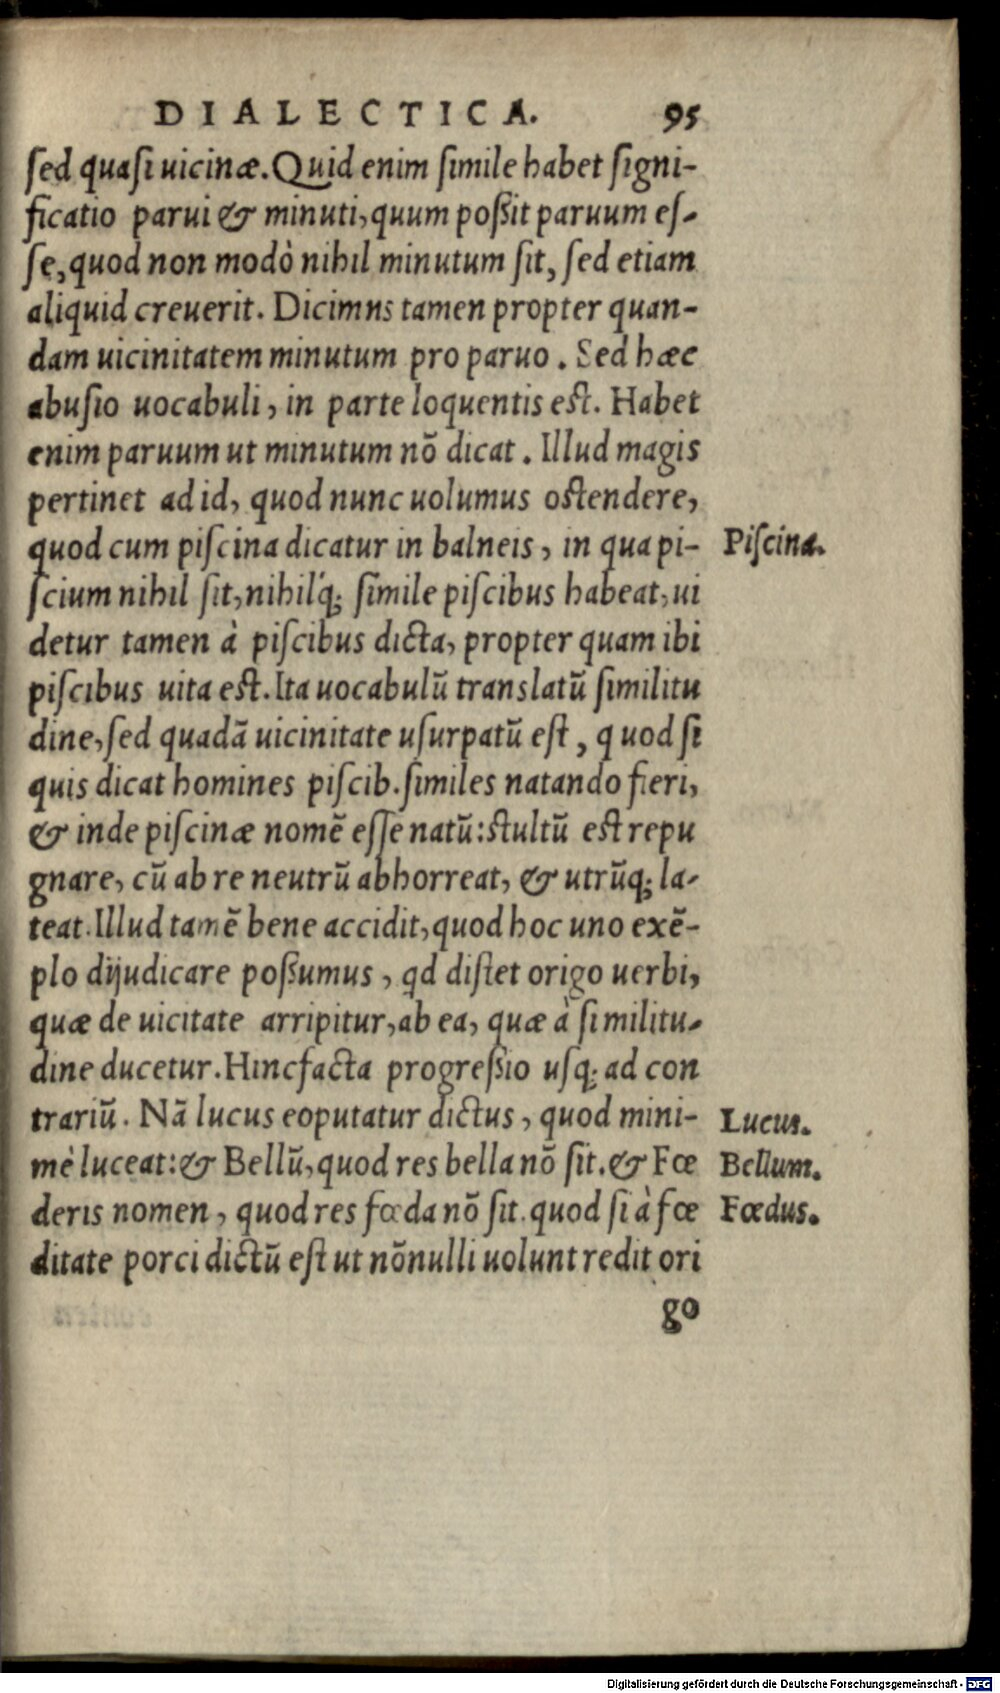 DIALECTICA. 95
ſed quaſi uicinæ. Quid enim ſimile habet ſigni-
ficatio parui & minuti, quum poßit paruum eſ-
ſe, quod non modò nihil minutum ſit, ſed etiam
aliquid creuerit. Dicimns tamen propter quan-
dam uicinitatem minutum pro paruo. Sed hæc
abuſio uocabuli, in parte loquentis eſt. Habet
enim paruum ut minutum nō dicat. Illud magis
pertinet ad id, quod nunc uolumus oſtendere,
quod cum piſcina dicatur in balneis, in qua pi-
Piſcina.
ſcium nihil ſit, nihilq́; ſimile piſcibus habeat, ui
detur tamen à piſcibus dicta, propter quam ibi
piſcibus uita eſt. Ita uocabulū translatū ſimilitu
dine, ſed quadā uicinitate uſurpatū eſt, quod ſi
quis dicat homines piſcib. ſimiles natando fieri,
& inde piſcinæ nomē eſſe natū: ſtultū eſt repu
gnare, cū ab re neutrū abhorreat, & utrūq; la-
teat. Illud tamē bene accidit, quod hoc uno exē-
plo dijudicare poßumus, qd diſtet origo uerbi,
quæ de uicitate arripitur, ab ea, quæ à ſimilitu-
dine ducetur. Hinc facta progreßio uſq; ad con
trariū. Nā lucus eo putatur dictus, quod mini-
Lucus.
mè luceat: & Bellū, quod res bella nō ſit. & Fœ
Bellum.
deris nomen, quod res fœda nō ſit. quod ſi à fœ
Fœdus.
ditate porci dictū eſt ut nōnulli uolunt redit ori
go
Digitalisierung gefördert durch die Deutsche Forschungsgemeinschaft - DFG